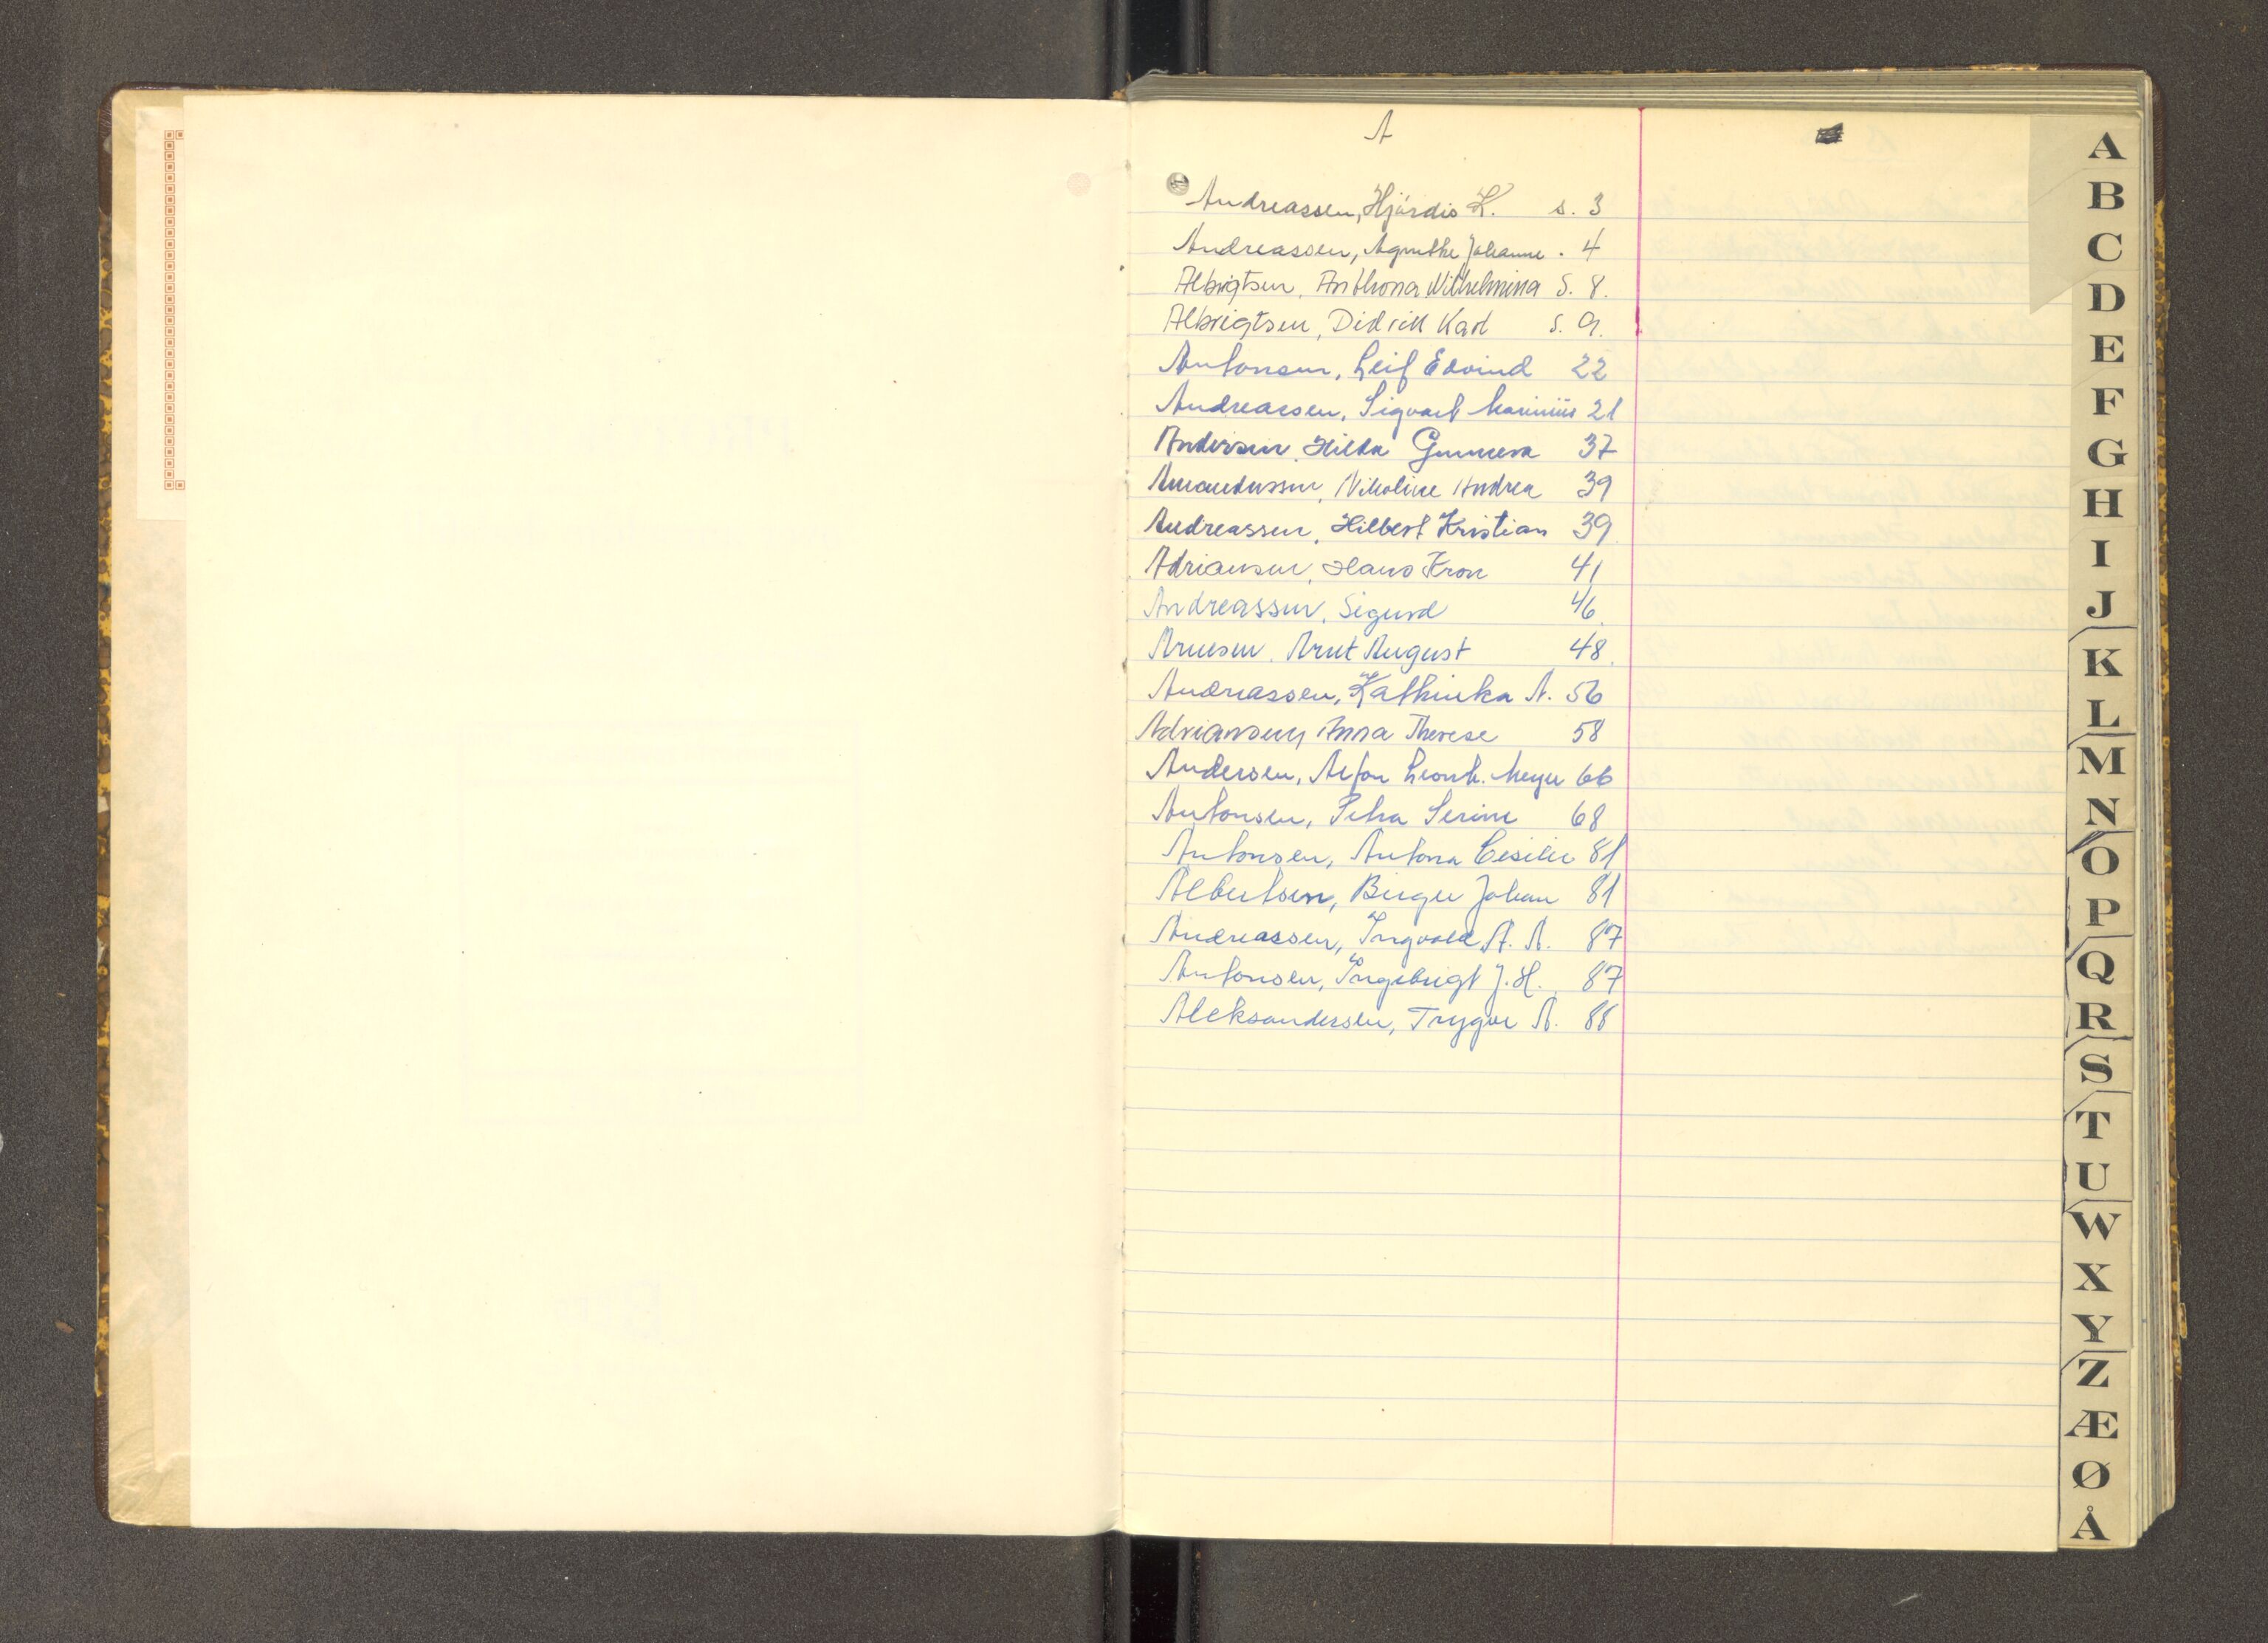 A
Andreassen, Hjördis K. s. 3
Andreassen, Agnethe Johanne . 4
Albrigtsen, Anthona Wilhelmina S. 8.
Albrigtsen, Didrik Karl s. 9.
Antonsen, Leif Edvind 22
Andreassen, Sigvart Marinius 21
Andersen, Hilda Gunneva 37
Amandussen, Nikoline Andrea 39
Andreassen, Hilbert Kristian 39
Adriansen, Hans Kron 41
Andreassen, Sigurd 46.
Arnesen, Arnt August 48.
Andreassen, Kathinka A. 56
Adriansen, Anna Therese 58
Andersen, Leonh. Meyer 66
Antonsen, Petra Serine 68
Antonsen, Antona Cesilie 81
Albertsen, Birger Johan 81
Andreassen, Ingvald A. A. 87
Antonsen, Ingebrigt J. H. 87
Aleksandersen, Trygve A. 88
A
B
C
D
E
F
G
H
I
J
K
L
M
N
O
P
Q
R
S
T
U
W
X
Y
Z
Æ
Ø
Å